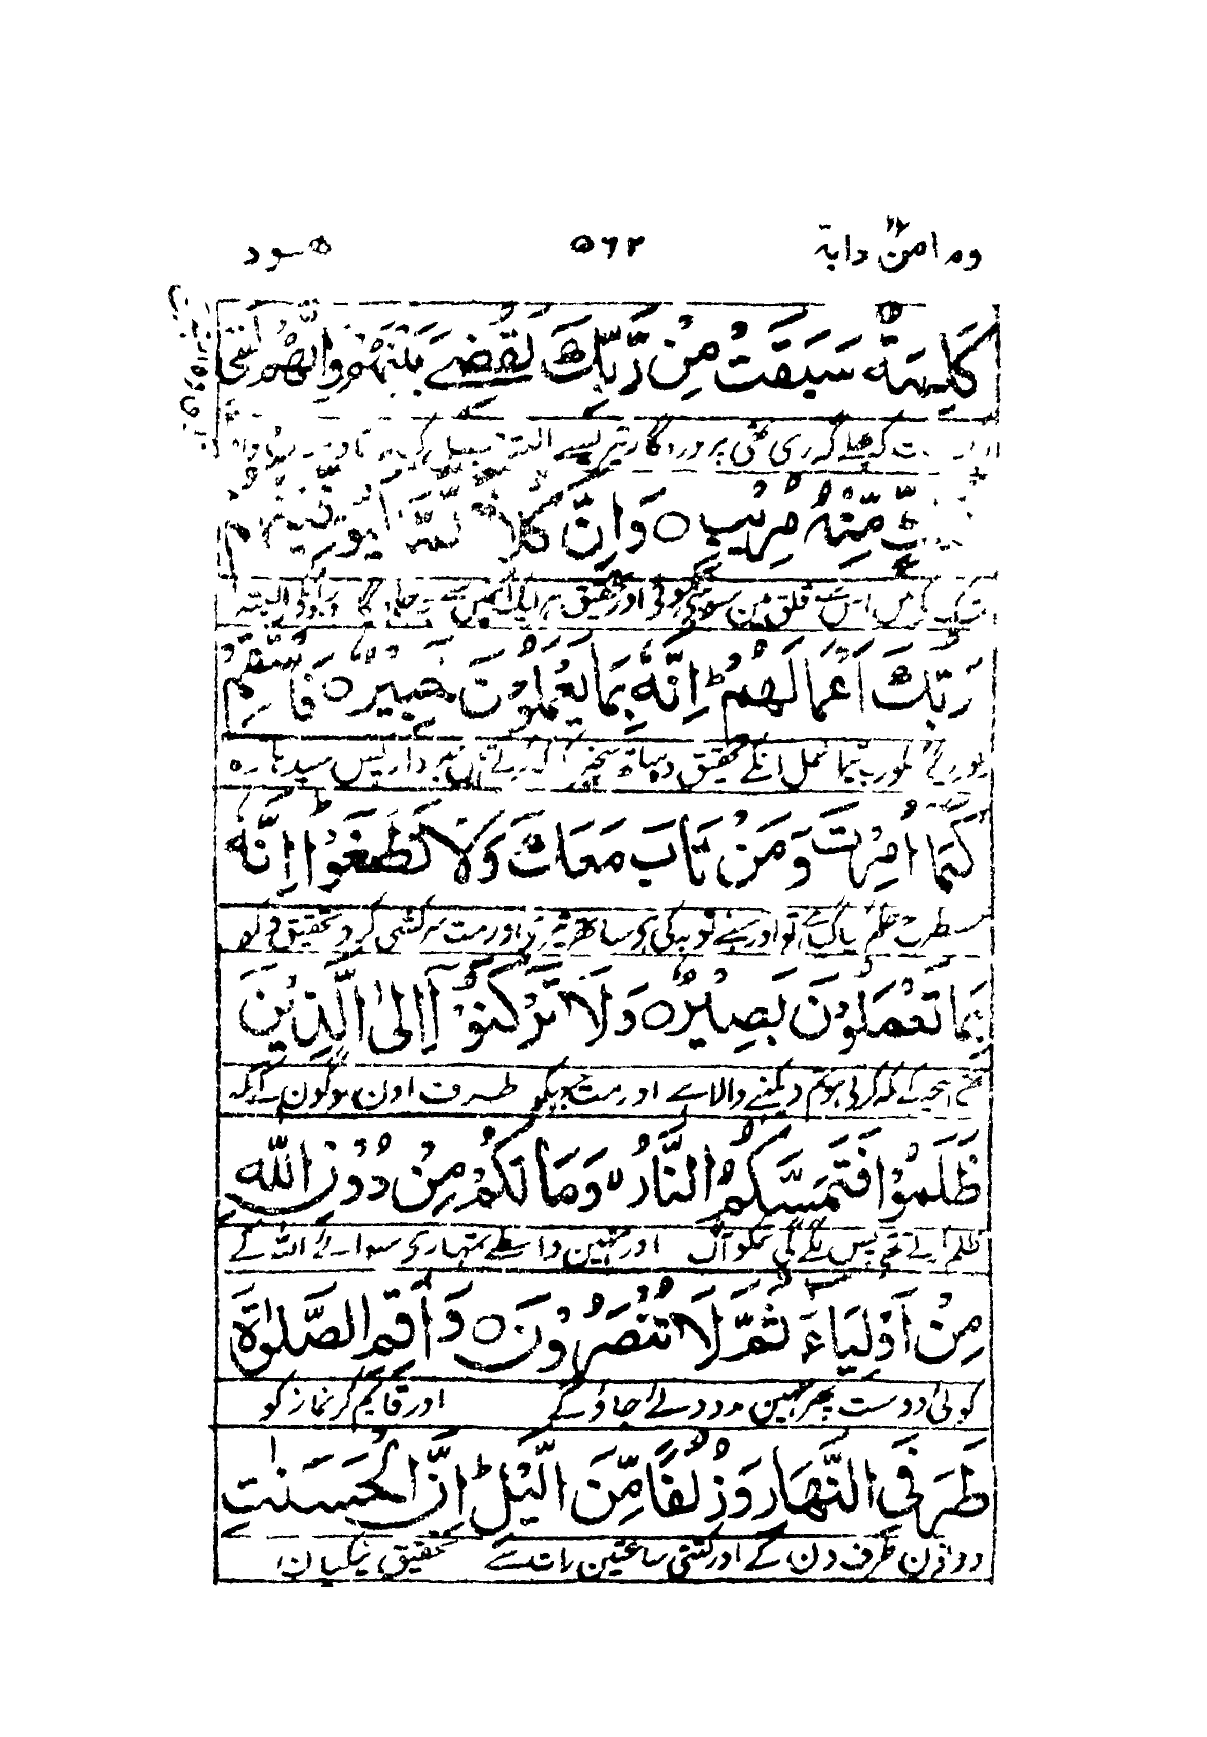 ومامن دابة ۱۲ ۵۶۲ هود
كَلِمَةٌ سَبَقَتْ مِنْ رَّبِّكَ لَقُضِيَ بَيْنَهُمْ وَاِنَّهُمْ لَفِيْ
کہ پہلے گذری تھی پروردگار تیرے سے البتہ فیصل کی
شَكٍّ مِّنْهُ مُرِيْبٍ ○ وَاِنَّ كُلًّا لَّمَّا لَيُوَفِّيَنَّهُمْ
شک کے ہیں اس سے قلق میں اور تحقیق ہر ایک البتہ
رَبُّكَ اَعْمَالَهُمْ ؕ اِنَّهٗ بِمَا يَعْمَلُوْنَ خَبِيْرٌ ○ فَاسْتَقِمْ
عمل انکے تحقیق وہ ساتھ کرتے ہیں خبردار پس سیدہا رہ
كَمَا اُمِرْتَ وَمَنْ تَابَ مَعَكَ وَلَا تَطْغَوْا ؕ اِنَّهٗ
حکم کیا گیا ہے تو اور جسنے توبہ کی ہی ساتھ تیرے اور مت سرکشی کرو تحقیق وہ
بِمَا تَعْمَلُوْنَ بَصِيْرٌ ○ وَلَا تَرْكَنُوْٓا اِلَى الَّذِيْنَ
کہ کرتے ہو تم دیکھنے والا ہے اور مت جہکو طرف اون لوگوں کے کہ
ظَلَمُوْا فَتَمَسَّكُمُ النَّارُ ۙ وَمَا لَكُمْ مِنْ دُوْنِ اللّٰهِ
ظلم پس لگے گی تمکو آگ اور نہیں واسطے تمہاری سواے اللہ کے
مِنْ اَوْلِيَآءَ ثُمَّ لَا تُنْصَرُوْنَ ○ وَاَقِمِ الصَّلٰوةَ
کوئی دوست پھر نہیں مدد دئے جاؤ گے اور قایم کر نماز کو
طَرَفَيِ النَّهَارِ وَزُلَفًا مِّنَ الَّيْلِ ؕ اِنَّ الْحَسَنٰتِ
دونوں طرف دن کے اور کتنی ساعتیں رات سے تحقیق نیکیاں